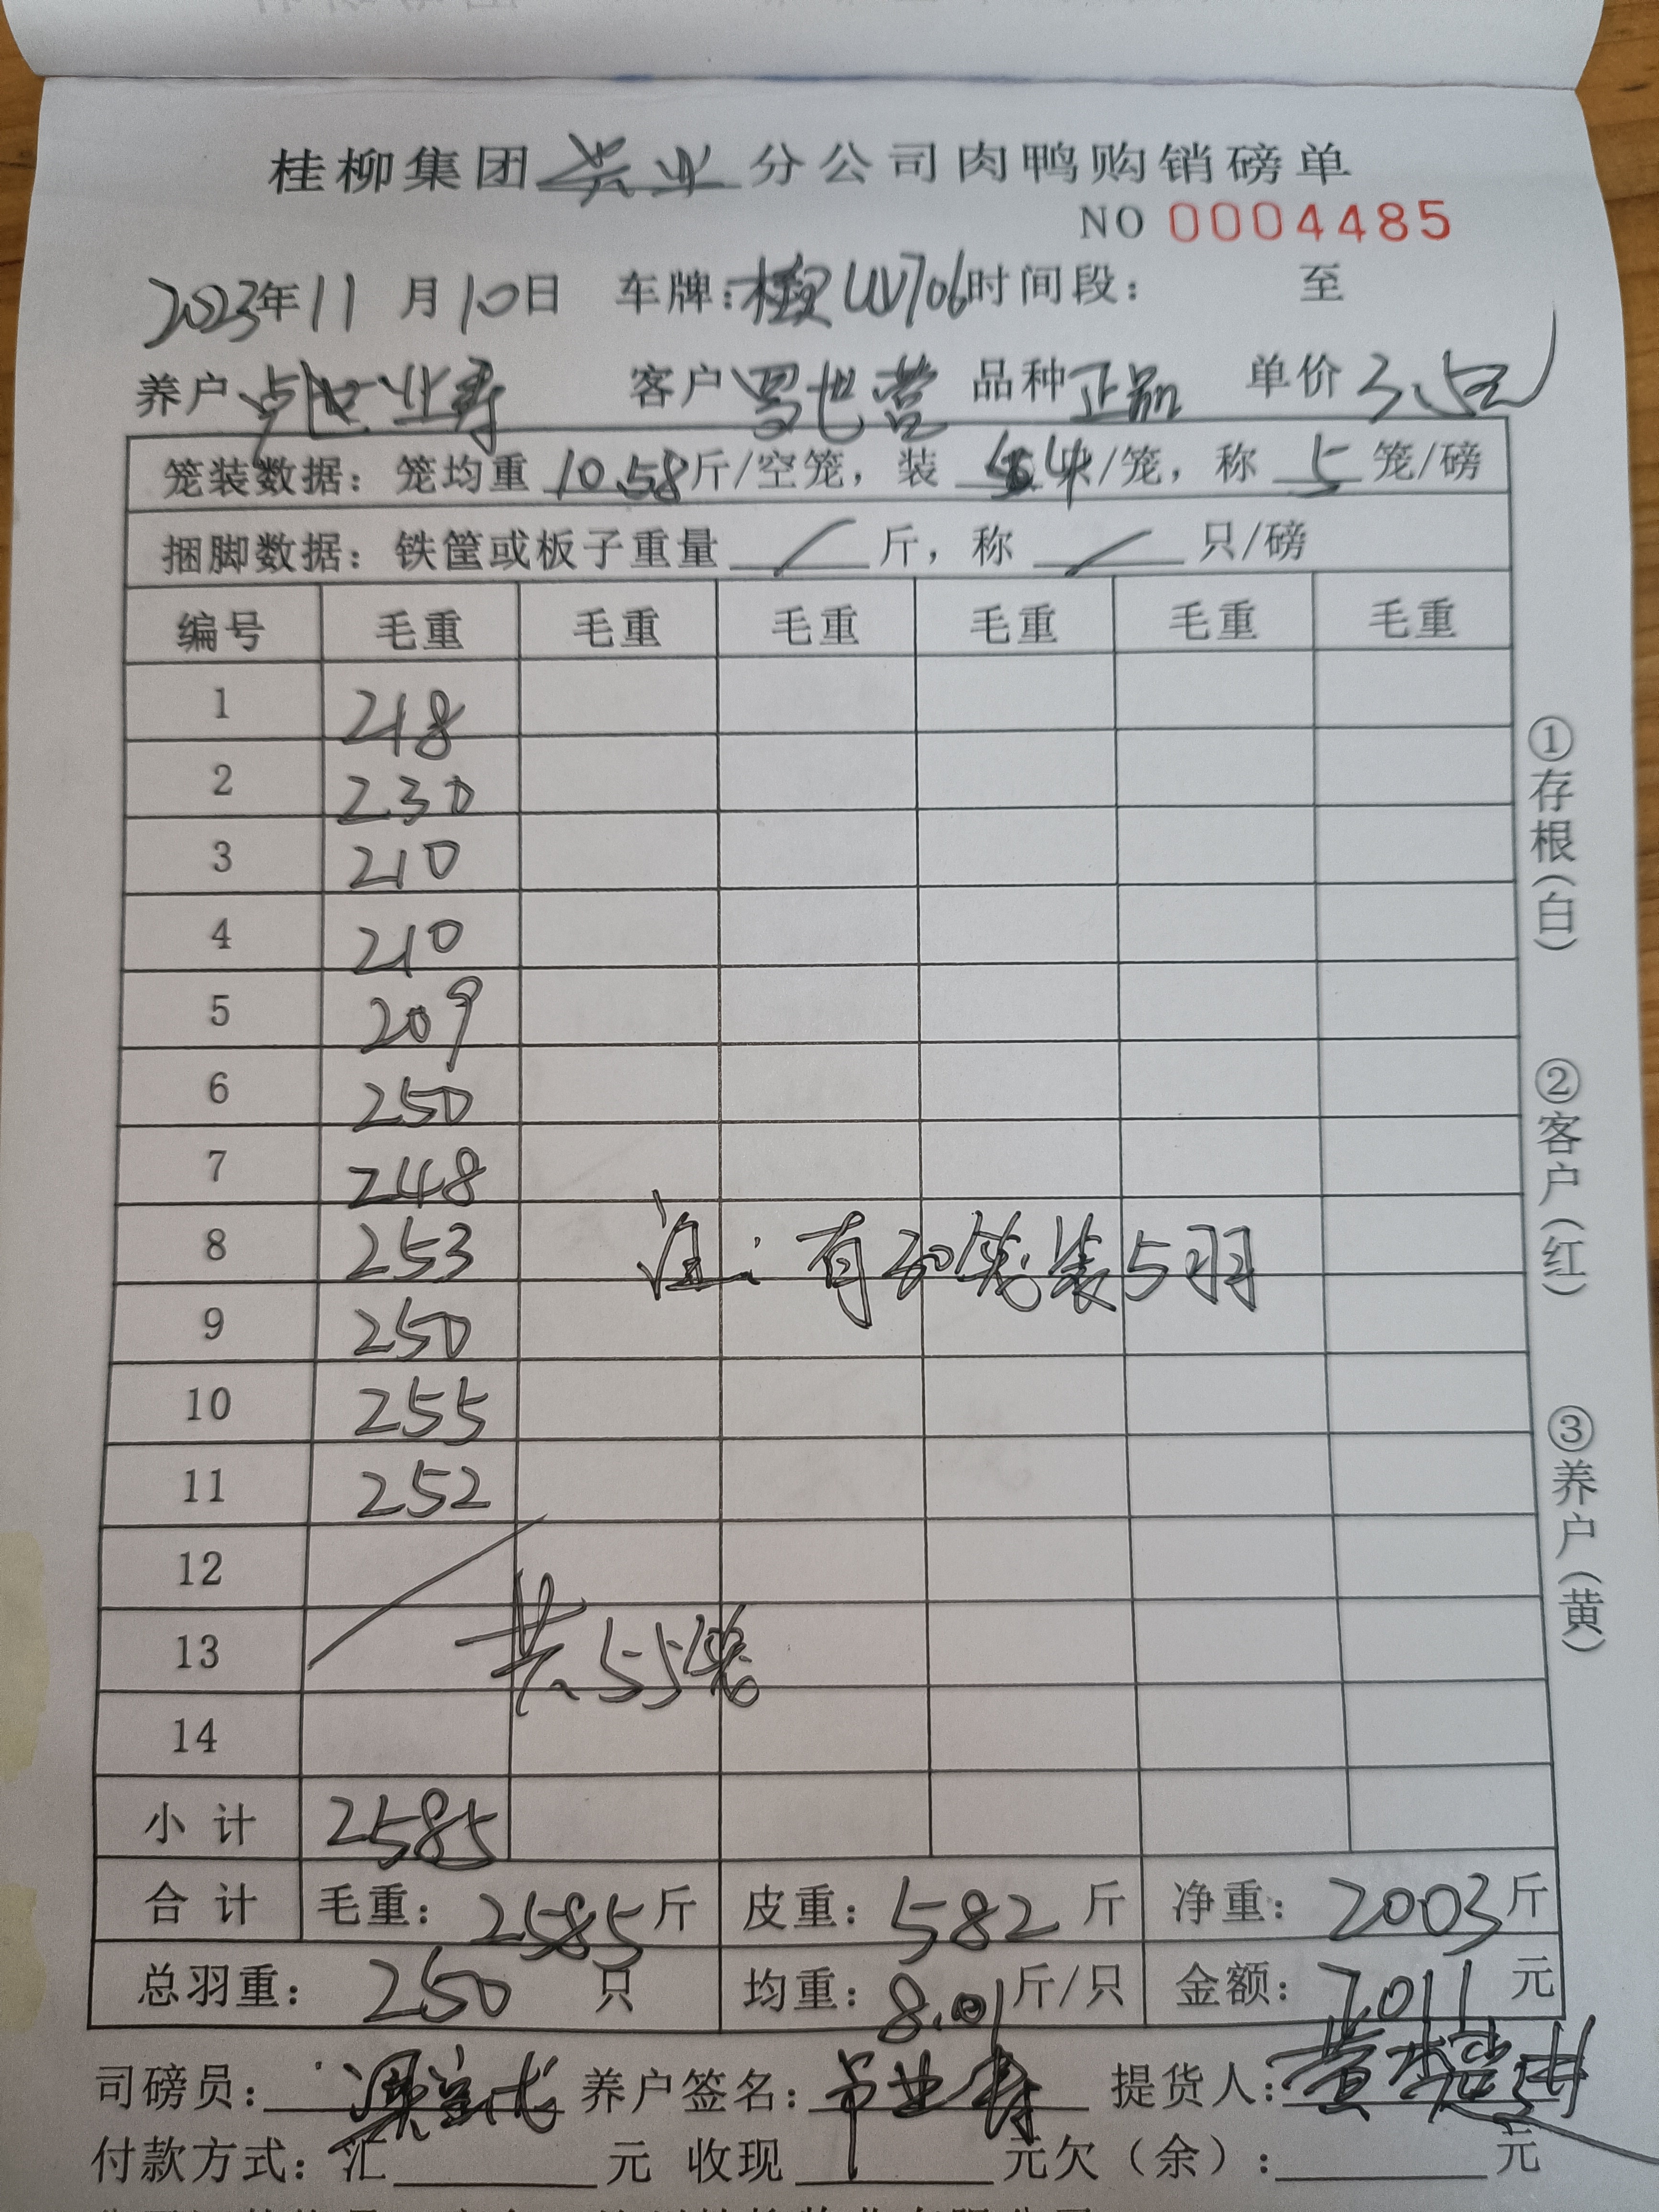 桂柳集团兴业分公司肉鸭购销磅单
NO 0004485
2023年11月10日 车牌:桂 UV706 时间段: 至
养户 业寿 客户 罗世营 品种 正品 单价 3.5元
笼装数据: 笼均重 10.58斤/空笼, 装 4只/笼, 称 5 笼/磅
捆脚数据: 铁筐或板子重量 / 斤, 称 / 只/磅
编号 毛重 毛重 毛重 毛重 毛重 毛重
1 218
2 230
3 210
4 210
5 209
6 250
7 248
8 253
注: 有30笼装5羽
9 250
10 255
11 252
12
13 共55笼
14
小计 2585
合计 毛重: 2585斤 皮重: 582斤 净重: 2003斤
总羽重: 250 只 均重: 8.01斤/只 金额: 7011元
司磅员: 养户签名: 业寿 提货人: 黄
付款方式: 汇 元 收现 元欠(余): 元
①存根(白) ②客户(红) ③养户(黄)